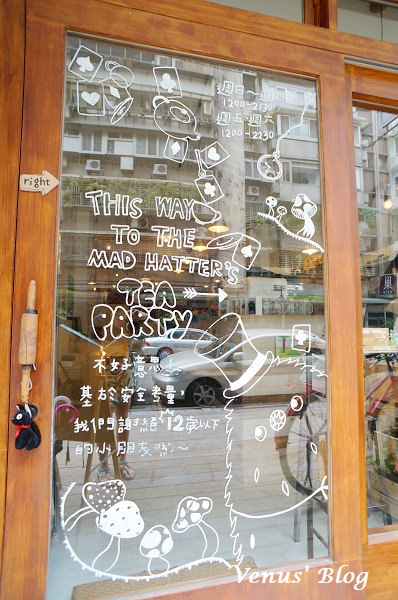 週日~週四
1200-2130
週五、週六
1200-2230
right
THIS WAY
TO THE
MAD HATTER'S
TEA
PARTY
不好意思!
基於安全考量,
我們謝絕12歲以下
的小朋友唷~
Venus' Blog